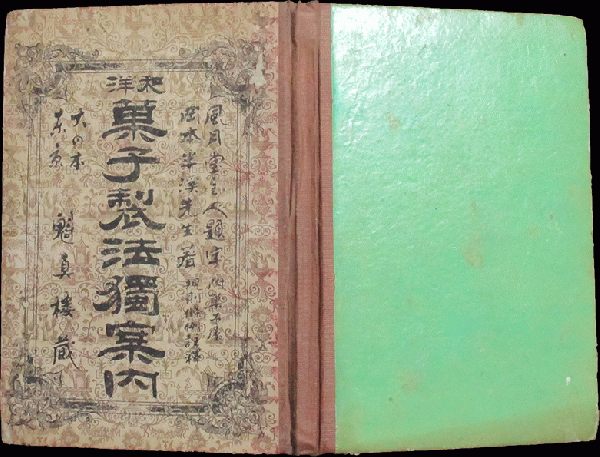 風月堂主人題字
岡本半渓先生著
和洋
菓子製法獨案内
大日本
東京
魁真楼蔵